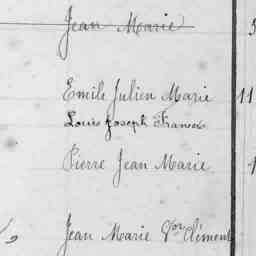 Jean Marie 3
Emile Julien Marie 11
Louis Joseph Francis
Pierre Jean Marie 1
Jean Marie Vor Clément